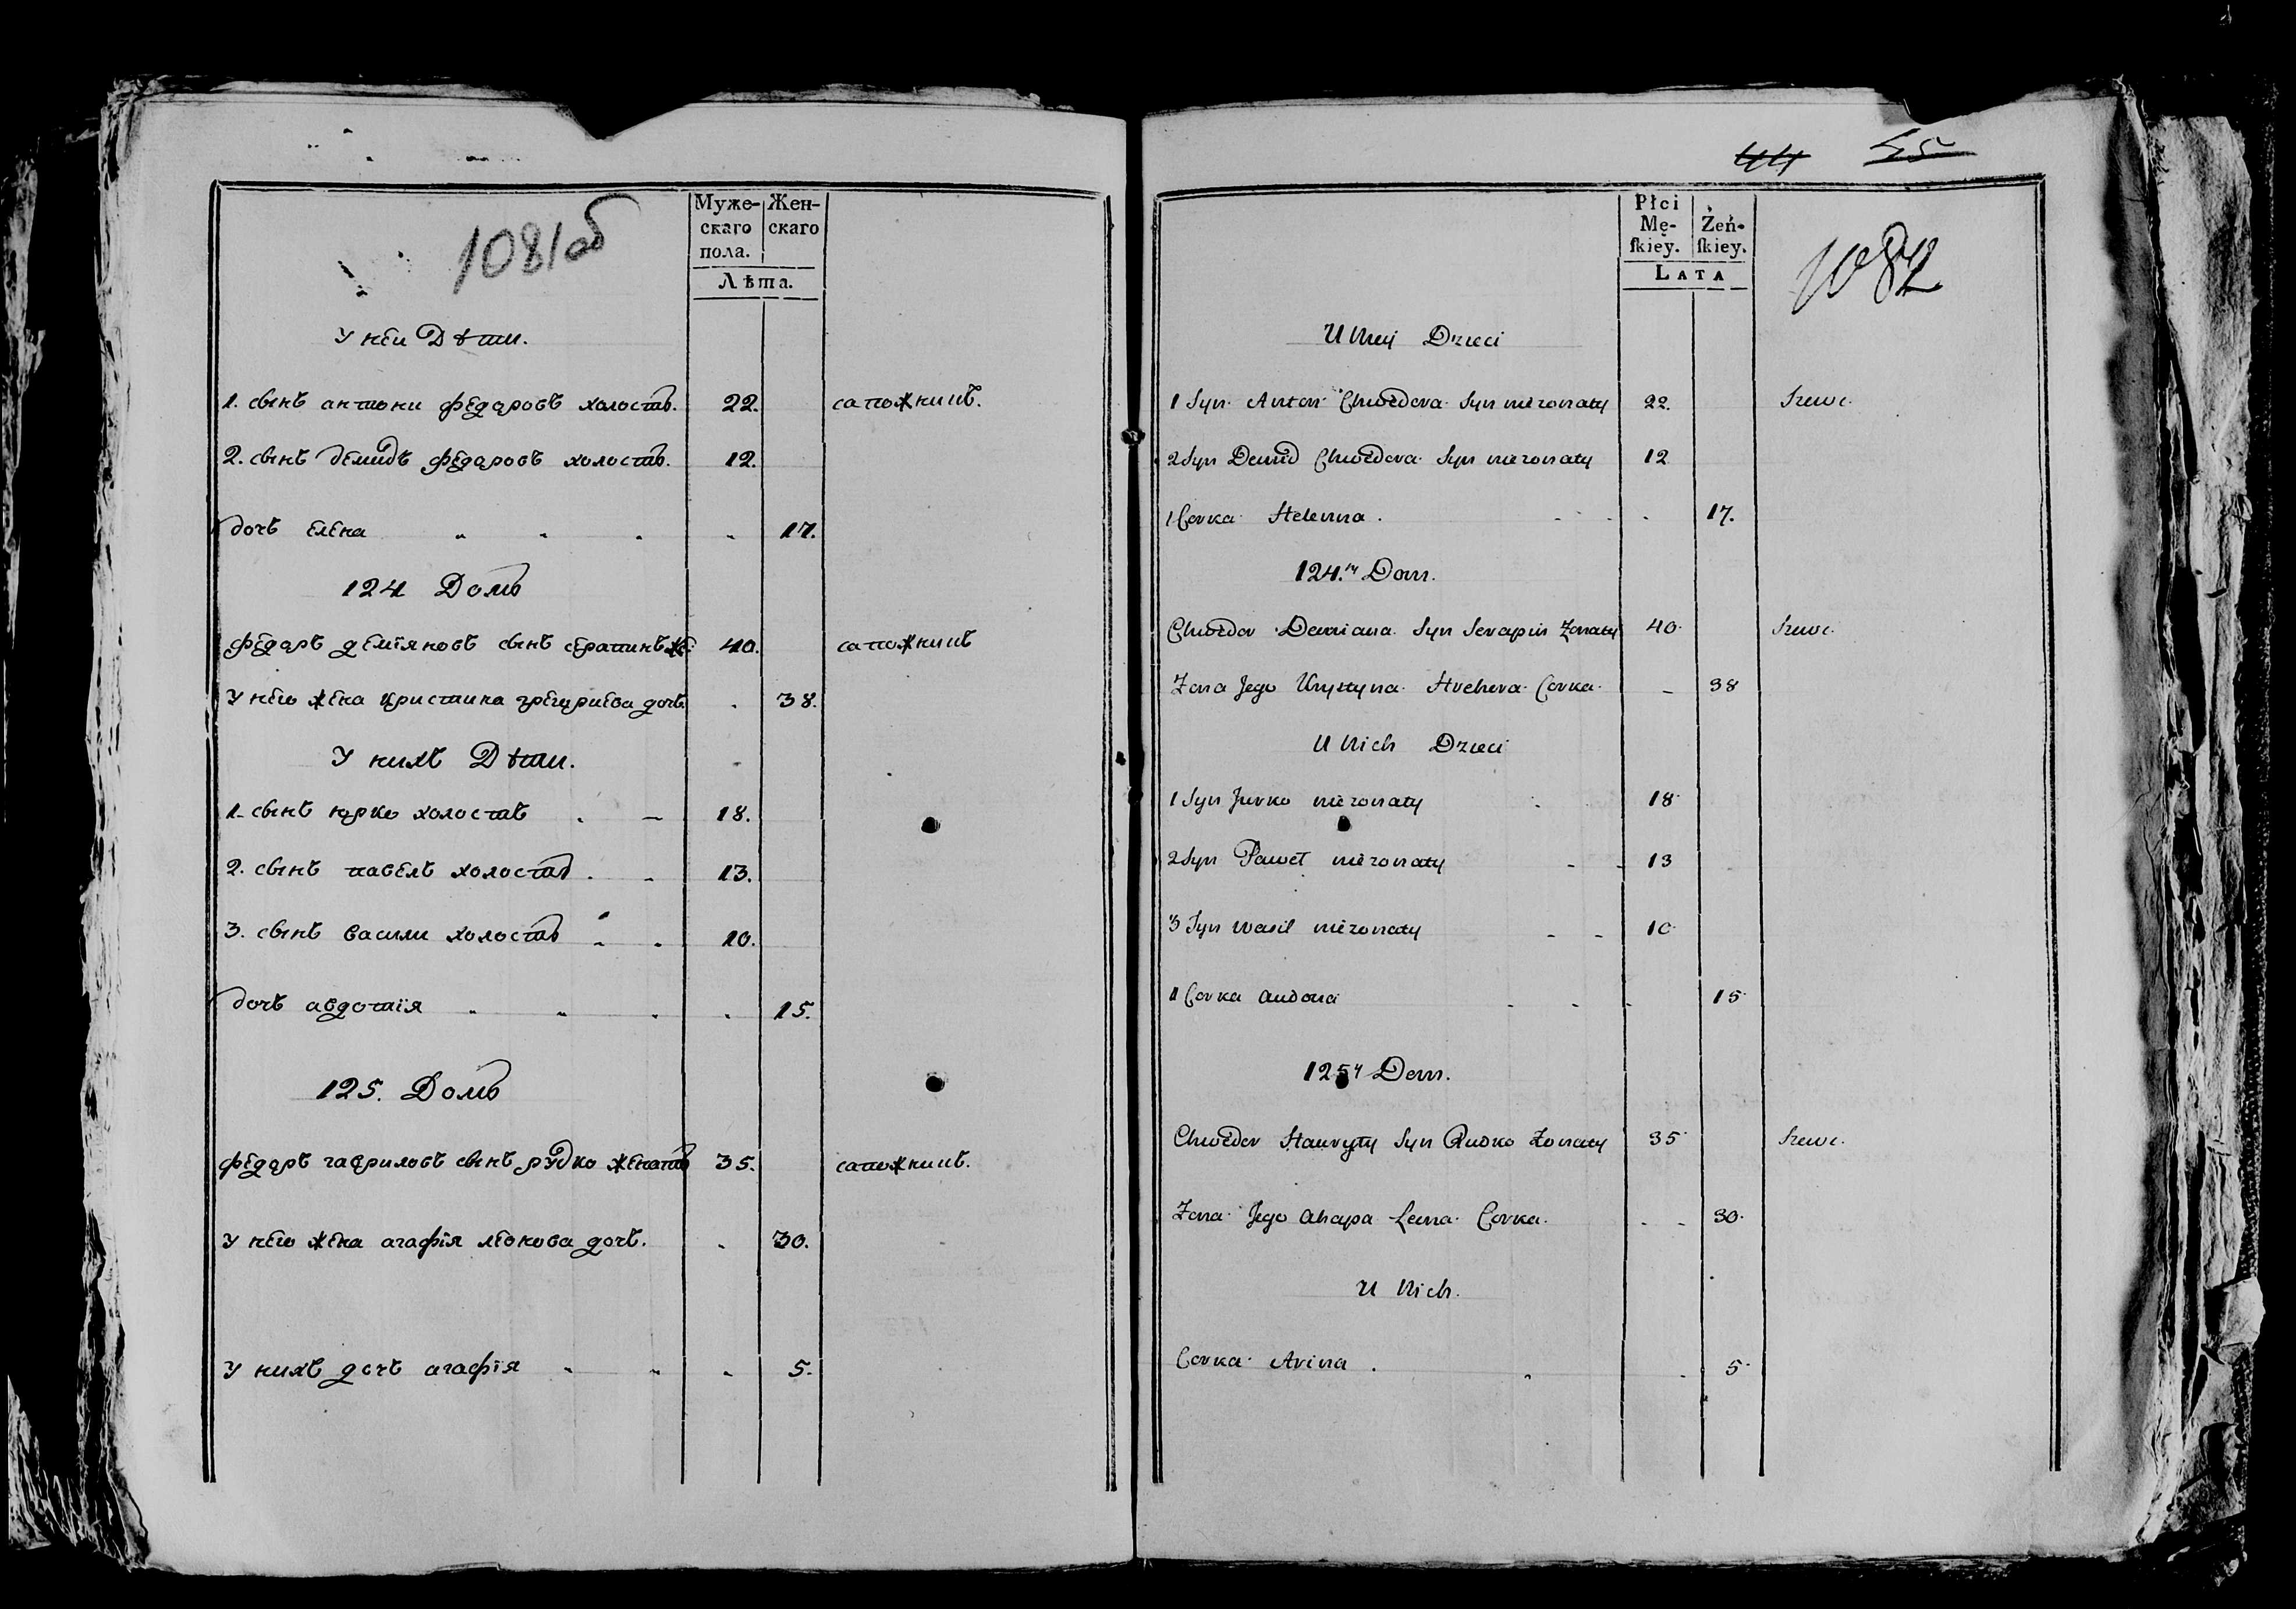 1081об
Муже-
скаго
пола.
Жен-
скаго
Лѣта.
У неи Дѣти.
1. сынъ антони федаровъ холостъ. 22. сапожникъ.
2. сынъ демидъ федаровъ холостъ. 12.
1 дочъ елена " " . " 17.
124 Домъ
федаръ деміяновъ сынъ серапинъ же: 40. сапожникъ
У нею жена кристина грегуриева дочъ. . 38.
У нихъ Дѣти.
1. сынъ юрко холостъ . – 18.
2. сынъ павелъ холостъ . . 13.
3. сынъ васили холостъ . . 10.
1 дочъ авдотія " " . . 15.
125. Домъ
федаръ гавриловъ сынъ рудко женатъ 35. сапожникъ.
У нею жена агафія леонова дочъ. . 30.
У нихъ дочъ агафія " " " 5.
44 55
Płci
Mę-
ſkiey.
Żeń-
ſkiey.
Lata
1082
U Niey Dzieci
1 Syn Anton Chwedora Syn niezonaty 22. Szewc.
2 Syn Demid Chwedora Syn niezonaty 12
1 Corka Helenna . . . . 17.
124.ty Dom.
Chwedor Demiana Syn Serapin Zonaty 40. Szewc.
Zona Jego Krystyna Hrehora Corka. – 38
U Nich Dzieci
1 Syn Jurko niezonaty . 18
2 Syn Paweł niezonaty - - 13
3 Syn Wasil niezonaty - - 10
1 Corka Audocia . . . 15
125ty Dom.
Chwedor Hauryły Syn Rudko Zonaty 35 Szewc.
Zona Jego Ahapa Leona Corka. . - 30.
U Nich.
Corka Arina . . . 5.